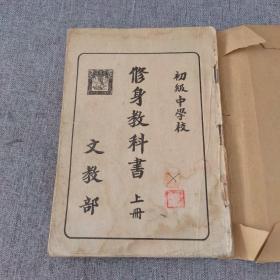 初級中學校
修身教科書 上冊
文教部